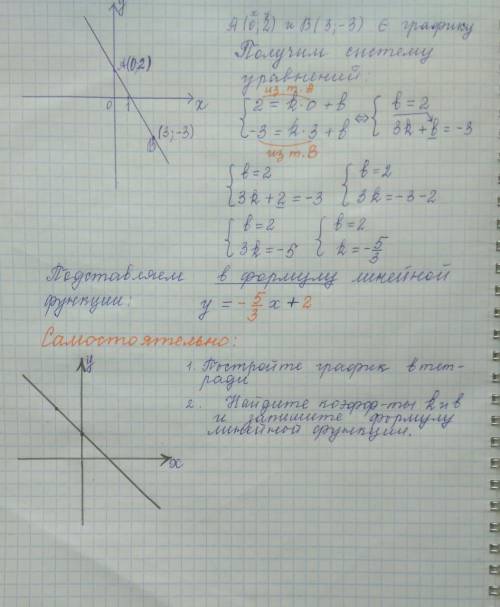 y
A(0,2)
0 1 x
B (3;-3)
x y
A(0,2) и B(3;-3) ∈ графику
Получим систему
уравнений:
из т. А
{ 2 = k·0 + b ⇔ { b = 2
{ -3 = k·3 + b { 3k + b = -3
из т. В
{ b = 2 { b = 2
{ 3k + 2 = -3 { 3k = -3 - 2
{ b = 2 { b = 2
{ 3k = -5 { k = -5/3
Подставляем в формулу линейной
функции: y = -5/3 x + 2
Самостоятельно:
y
x
1. Постройте график в тет-
ради
2. Найдите коэфф-ты k и b
и запишите формулу
линейной функции.